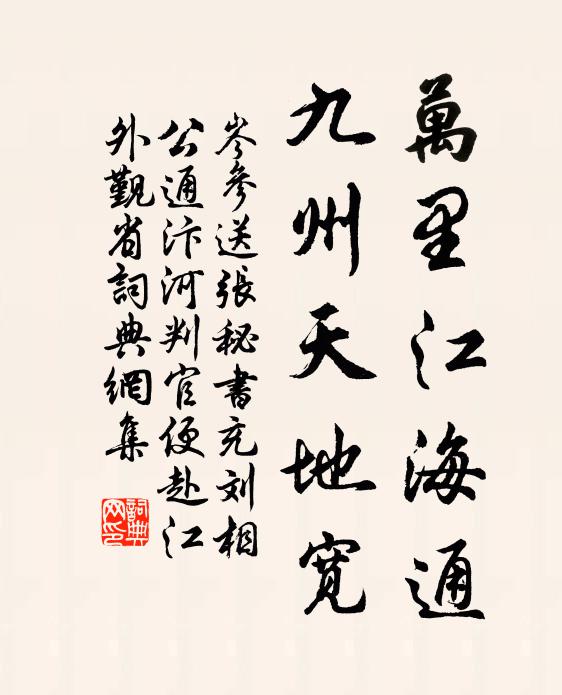 萬里江海通
九州天地寬
岑參送張秘書充刘相
公通汴河判官便赴江
外覲省詞典網集
詞典网印